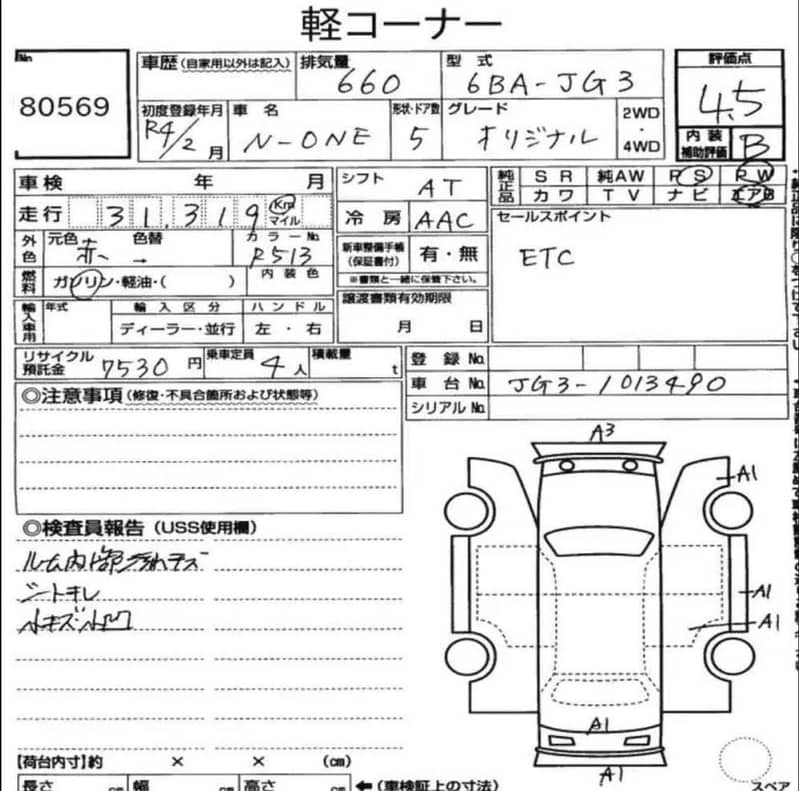 軽コーナー
No
80569
車歴(自家用以外は記入) 排気量 660 型式 6BA-JG3
評価点 4.5
初度登録年月 R4/2月 車名 N-ONE 形状・ドア数 5 グレード オリジナル 2WD・4WD
内装補助評価 B
車検 年 月 シフト AT 純正品 SR 純AW PS PW
カワ TV ナビ エアB
走行 31,319 Km マイル 冷房 AAC セールスポイント
外色 元色 赤 色替 → カラーNo. R513 新車整備手帳(保証書付) 有・無 ETC
燃料 ガソリン・軽油・( ) 内装色 ※書類と一緒に保管下さい。
輸入車用 年式 輸入区分 ハンドル 譲渡書類有効期限
ディーラー・並行 左・右 月 日
リサイクル預託金 7530円 乗車定員 4人 積載量 t 登録No.
車台No. JG3-1013490
シリアルNo.
◎注意事項(修復・不具合箇所および状態等)
A3
A1
◎検査員報告(USS使用欄)
ルーム内部汚れキズ
シートキレ
A1
小キズ小凹
A1
A1
【荷台内寸】約 × × (cm)
A1
長さ cm 幅 cm 高さ cm ←(車検証上の寸法)
スペア